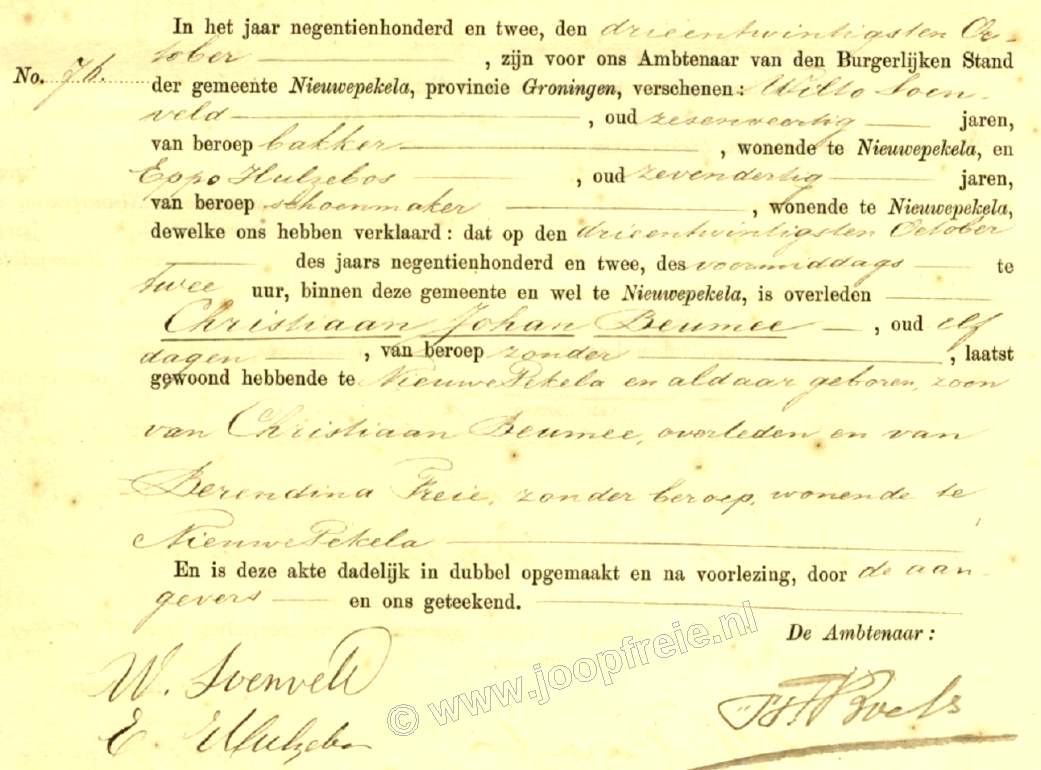 In het jaar negentienhonderd en twee, den drieentwintigsten Oc-
No. 76. tober, zijn voor ons Ambtenaar van den Burgerlijken Stand
der gemeente Nieuwepekela, provincie Groningen, verschenen: Wilto Loen-
veld, oud zesenveertig jaren,
van beroep bakker, wonende te Nieuwepekela, en
Eppo Hulzebos, oud zevendertig jaren,
van beroep schoenmaker, wonende te Nieuwepekela,
dewelke ons hebben verklaard: dat op den drieentwintigsten October
des jaars negentienhonderd en twee, des voormiddags te
twee uur, binnen deze gemeente en wel te Nieuwepekela, is overleden
Christiaan Johan Beumee, oud elf
dagen, van beroep zonder, laatst
gewoond hebbende te Nieuwe Pekela en aldaar geboren, zoon
van Christiaan Beumee, overleden en van
Berendina Freie, zonder beroep, wonende te
Nieuwe Pekela
En is deze akte dadelijk in dubbel opgemaakt en na voorlezing, door de aan-
gevers en ons geteekend.
De Ambtenaar:
W. Loenveld
E. Hulzebos
© www.joopfreie.nl